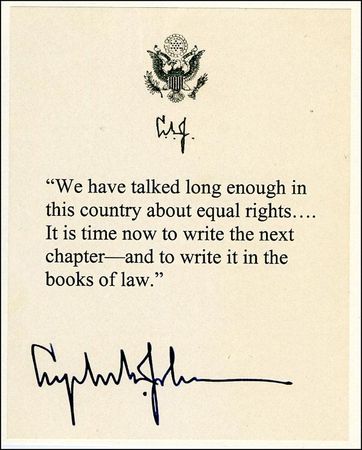 L.B.J.
“We have talked long enough in
this country about equal rights….
It is time now to write the next
chapter—and to write it in the
books of law.”
Lyndon B. Johnson